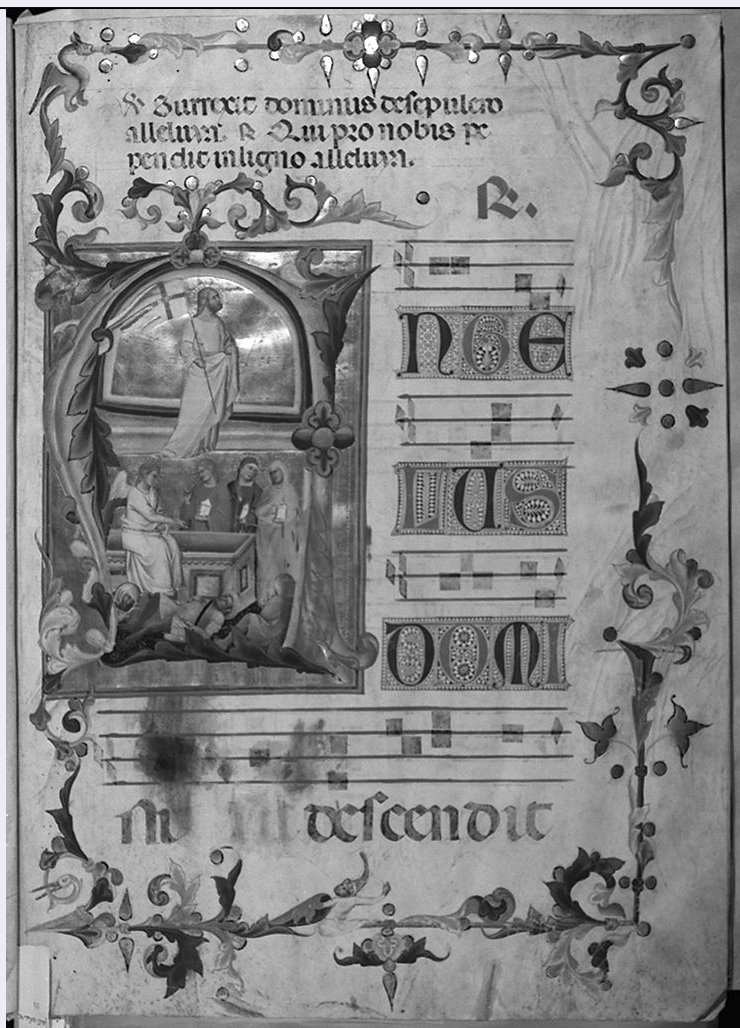 ℣ Surrexit dominus de sepulcro
alleluya. ℟ Qui pro nobis pe
pendit in ligno alleluya.
℟.
A NGE
LUS
DOMI
ni descendit